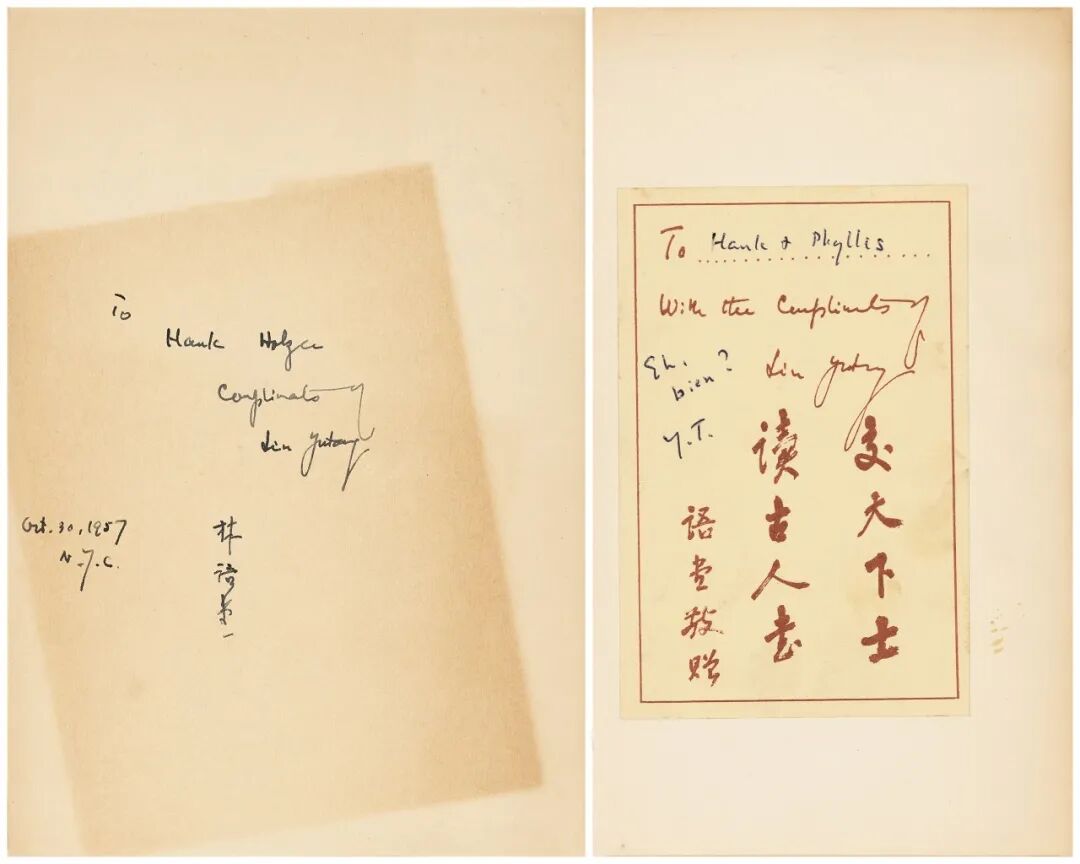 To
Hank Holzer
Compliments of
Lin Yutang
Oct. 30, 1957
N.Y.C.
林語堂
To Hank & Phyllis
With the Compliments of
Lin Yutang
Eh.
bien?
Y.T.
交天下士
讀古人書
語堂敬贈